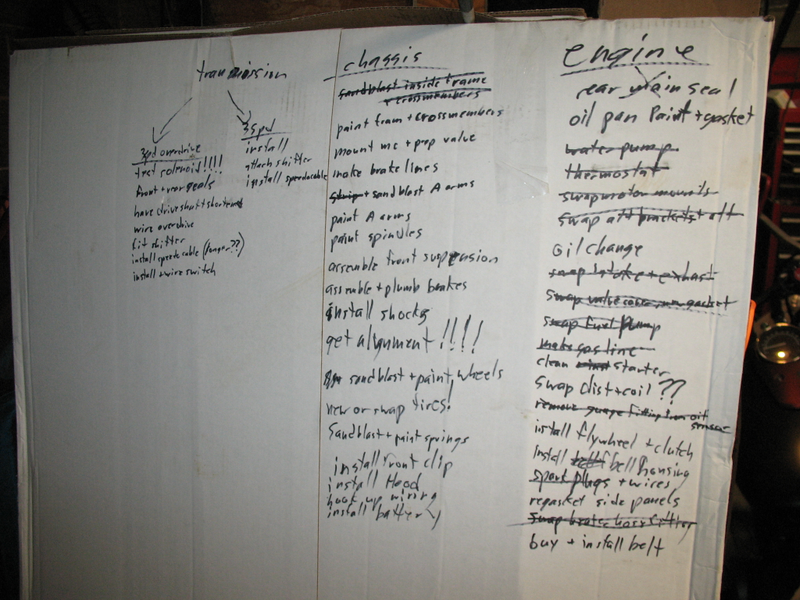 transmission
3spd overdrive
test solenoid!!!!
front + rear seals
have driveshaft shortened
wire overdrive
fit shifter
install speedo cable (longer??)
install + wire switch
3spd
install
attach shifter
install speedo cable
chassis
sandblast inside frame
+ crossmembers
paint fram + crossmembers
mount mc + prop valve
make brake lines
strip + sandblast A arms
paint A arms
paint spindles
assemble front suspension
assemble + plumb brakes
install shocks
get alignment !!!!
sandblast + paint wheels
new or swap tires!
Sandblast + paint springs
install front clip
install Hood
hook up wiring
install battery
engine
rear main seal
oil pan Paint + gasket
water pump
thermostat
swap motor mounts
swap alt brackets + alt
oil change
swap intake + exhast
swap valve cover, new gasket
swap fuel pump
make gas line
clean starter
swap dist + coil ??
remove guage fitting from oil
install flywheel + clutch
install bell housing
spark plugs + wires
regasket side panels
swap brake hose fitting
buy + install belt